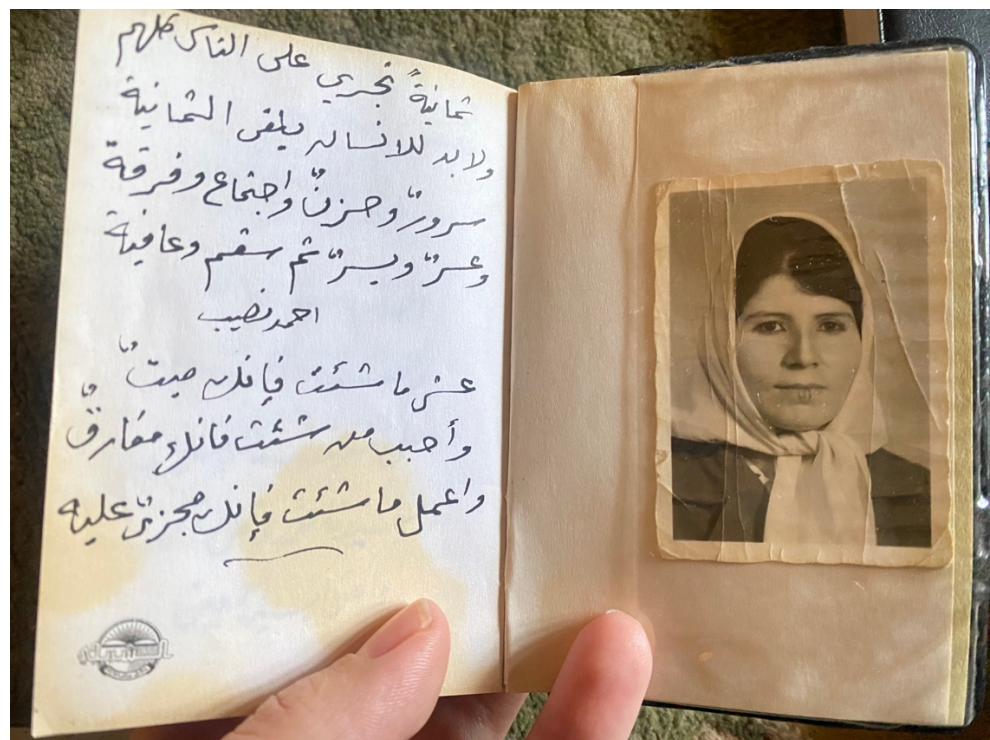 ثمانيةً تجري على الناس كلهم
ولابد للانسان يلقى الثمانية
سرورٌ وحزنٌ واجتماع وفرقة
وعسرٌ ويسرٌ ثم سقم وعافية
احمد نصيب
عش ما شئت فإنك ميتٌ
وأحبب من شئت فانك مفارقٌ
واعمل ما شئت فإنك مجزىٌ عليه